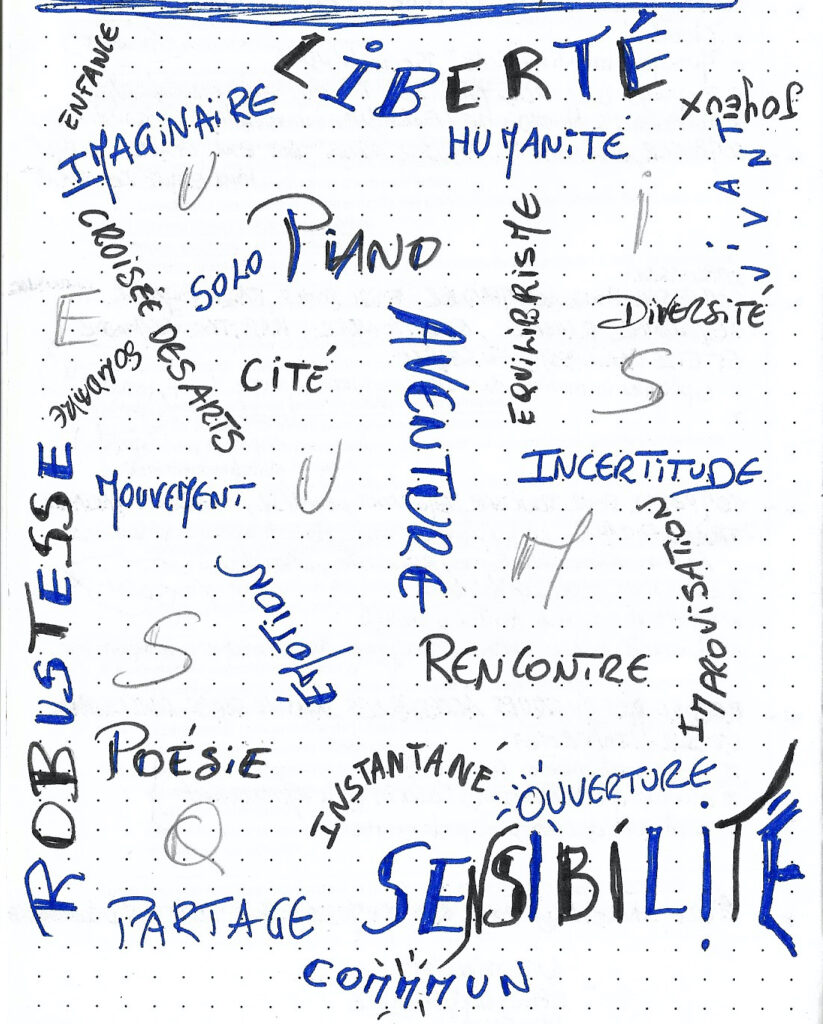 ENFANCE
LiBERTÉ
joyeux
IMAGiNAiRE
HUMANiTÉ
ViVANT
U
i
CROISÉE DES ARTS
SOLO
PiANO
EQUILIBRISME
E
DiVERSiTÉ
AVENTURE
CiTÉ
S
ROBUSTESSE
MOUVEMENT
U
INCERTiTUDE
M
IMPROVISATION
ÉMOTiON
S
RENCONTRE
POÉSiE
INSTANTANÉ
OUVERTURE
Q
SENSiBiLiTÉ
PARTAGE
COMMMUN